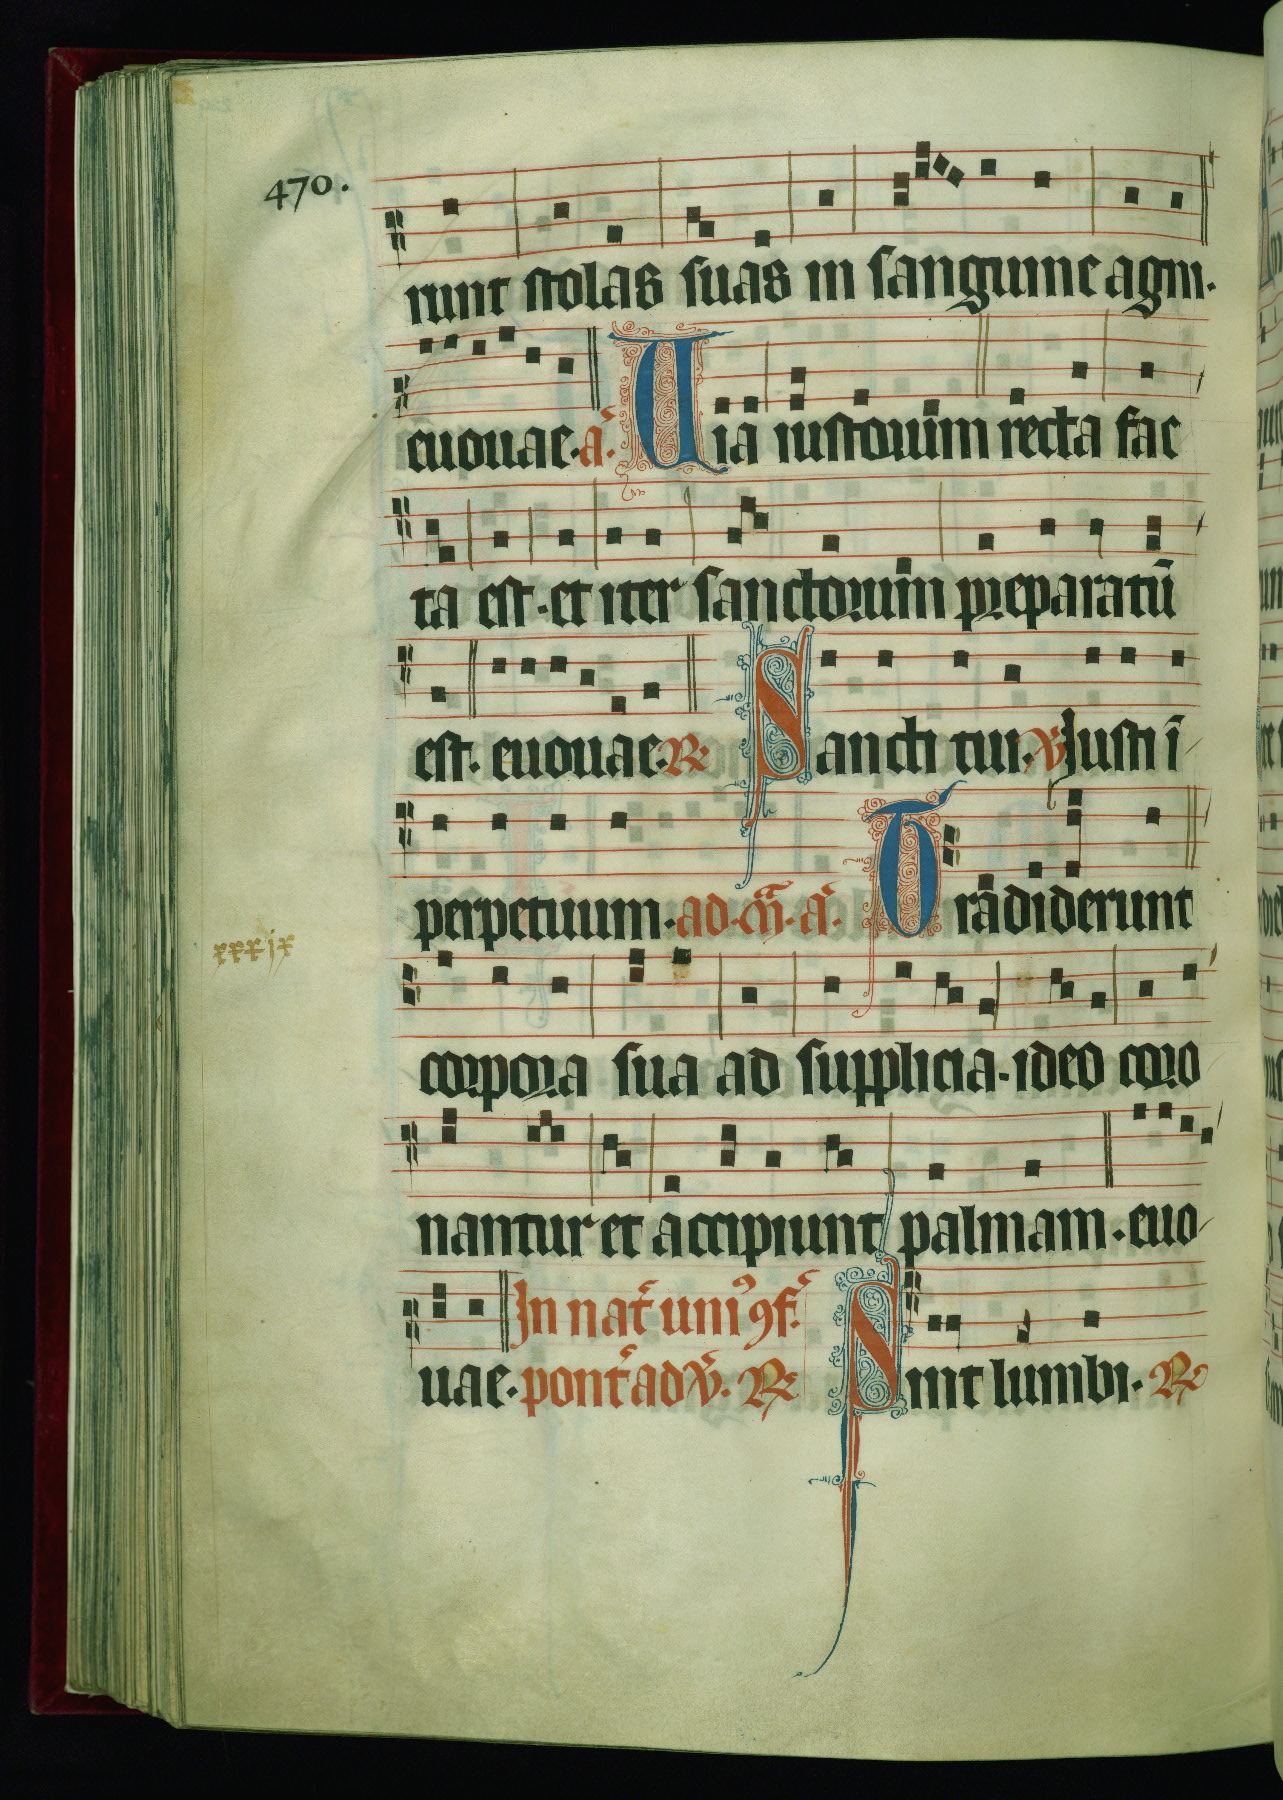 470.
runt stolas suas in sanguine agni.
euouae. a. Uia iustorum recta fac
ta est. et iter sanctorum preparatū
est. euouae. R. Sancti tui. V. Iusti ī
perpetuum. ad. m̄. a. Tradiderunt
xxxix
corpora sua ad supplicia. ideo coro
nantur et accipiunt palmam. euo
In nat̄ uni9 9f.
uae. pont̄ ad v̄. R. Sint lumbi. R.